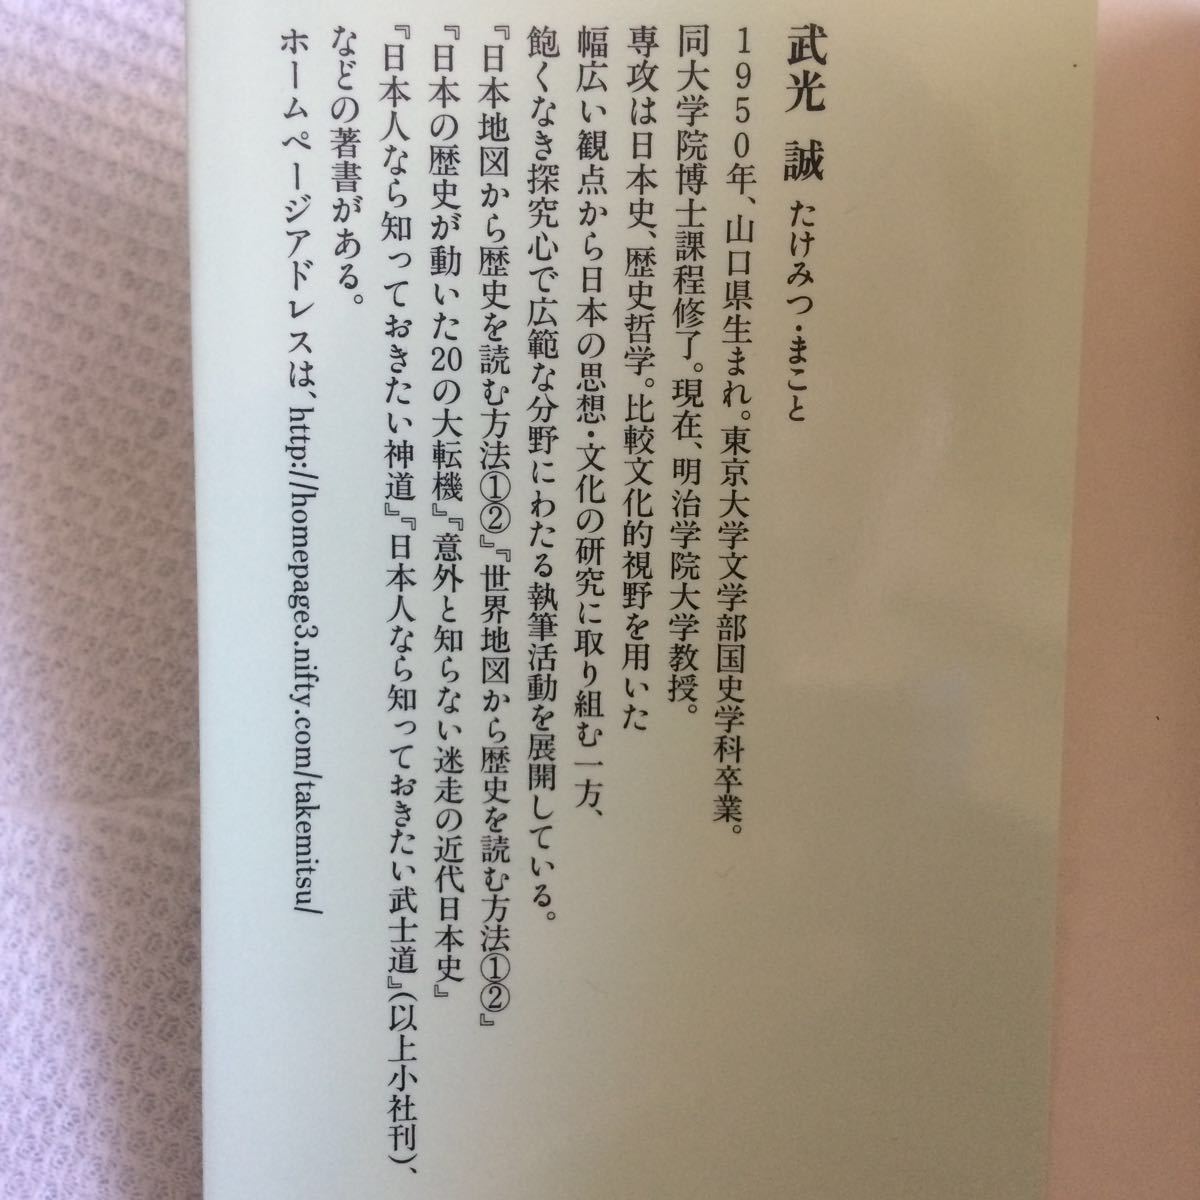 武光 誠 たけみつ・まこと
1950年、山口県生まれ。東京大学文学部国史学科卒業。
同大学院博士課程修了。現在、明治学院大学教授。
専攻は日本史、歴史哲学。比較文化的視野を用いた
幅広い観点から日本の思想・文化の研究に取り組む一方、
飽くなき探究心で広範な分野にわたる執筆活動を展開している。
『日本地図から歴史を読む方法①②』『世界地図から歴史を読む方法①②』
『日本の歴史が動いた20の大転機』『意外と知らない迷走の近代日本史』
『日本人なら知っておきたい神道』『日本人なら知っておきたい武士道』(以上小社刊)、
などの著書がある。
ホームページアドレスは、http://homepage3.nifty.com/takemitsu/